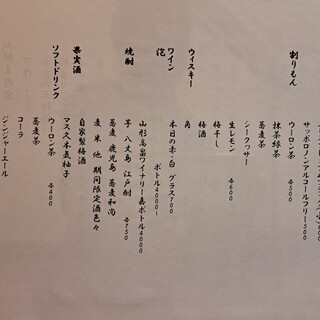 サッポロノンアルコールフリー500
割りもん
ウーロン茶 各500
抹茶緑茶
蕎麦茶
シークヮサー
生レモン 各600
梅干し
梅酒
ウィスキー
角
ワイン
本日の赤・白 グラス700
ボトル4000〜
山形高畠ワイナリー嘉ボトル4000
焼酎
芋 八丈島 江戸酎 各750
蕎麦 鹿児島 蕎麦和尚
麦 米 他 期間限定酒色々
果実酒
自家製梅酒
マスス本気柚子
ソフトドリンク
ウーロン茶 各400
蕎麦茶
コーラ
ジンジャーエール